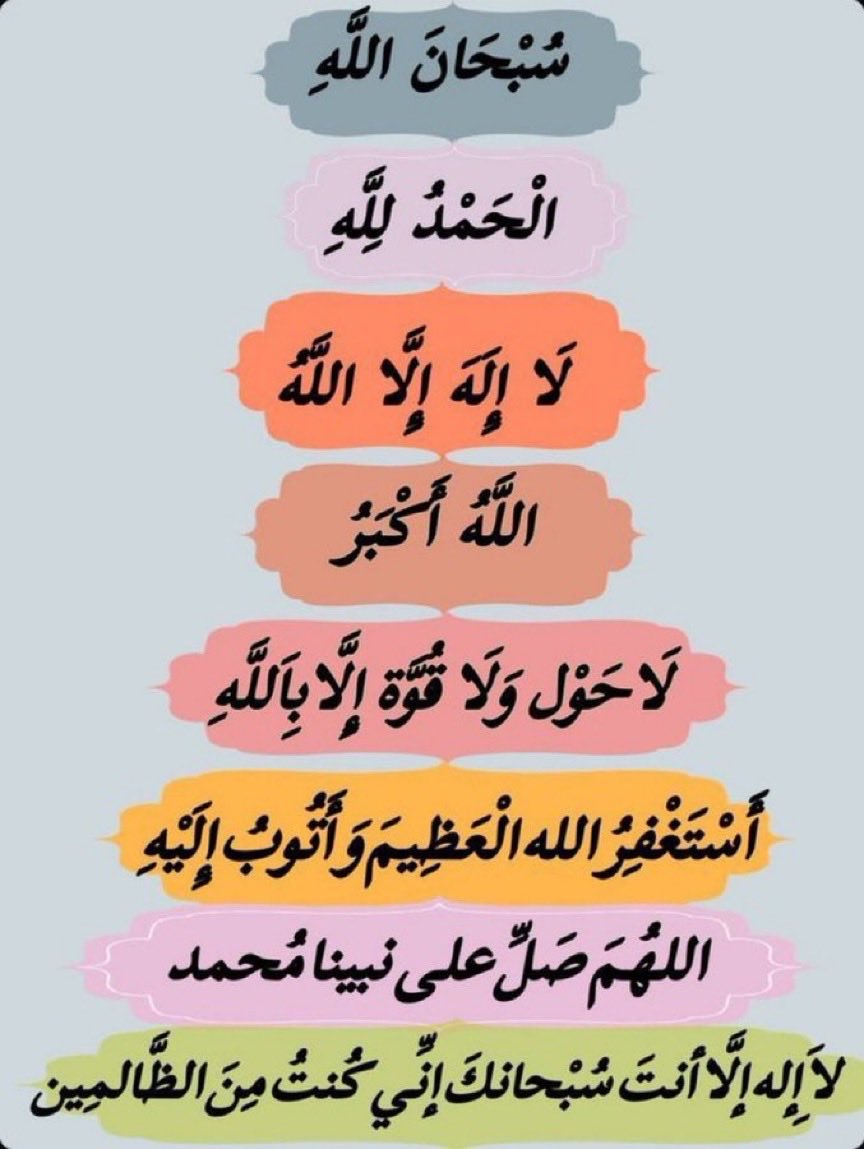 سُبْحَانَ اللَّهِ
الْحَمْدُ لِلَّهِ
لَا إِلَهَ إِلَّا اللَّهُ
اللَّهُ أَكْبَرُ
لَا حَوْل وَلَا قُوَّة إِلَّا بِاَللَّهِ
أَسْتَغْفِرُ الله الْعَظِيمَ وَأَتُوبُ إِلَيْهِ
اللهُمَ صَلِّ على نبينا مُحمد
لاَ إِله إلَّا أنتَ سُبْحانكَ إنِّي كُنتُ مِنَ الظَّالمِين